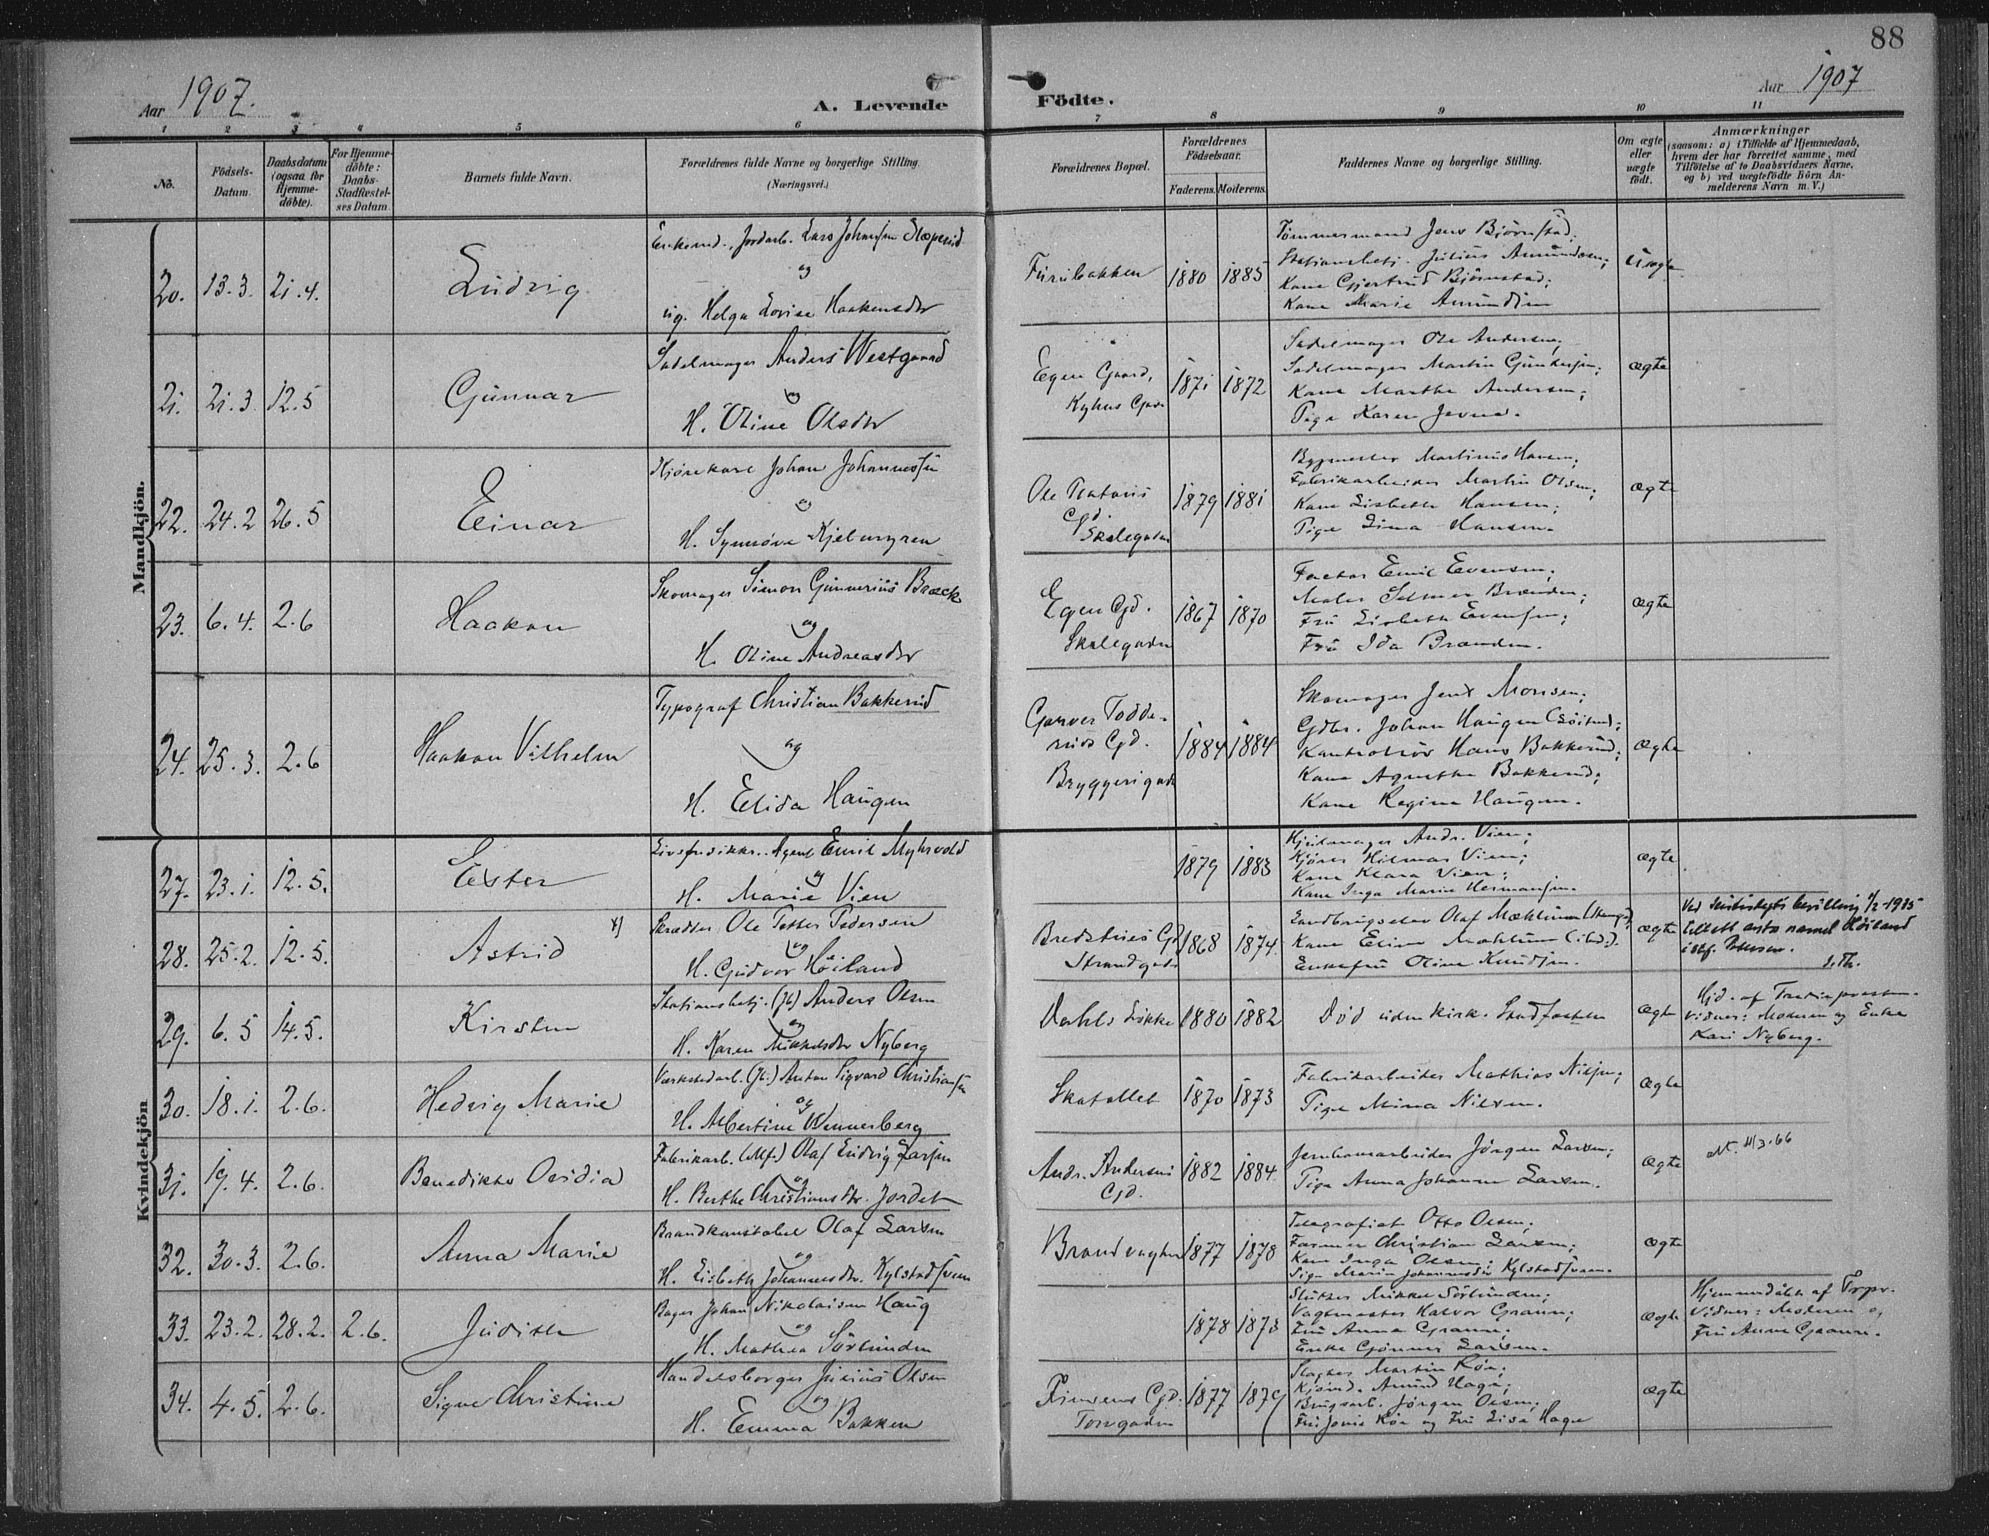 88
Aar 1907.
A. Levende Födte.
Aar 1907
1 2 3 4 5 6 7 8 9 10 11
No.
Födsels-
Datum.
Daabsdatum
(ogsaa for
Hjemme-
döbte).
For Hjemme-
döbte:
Daabs-
Stadfæstel-
ses Datum.
Barnets fulde Navn.
Forældrenes fulde Navne og borgerlige Stilling.
(Næringsvei.)
Forældrenes Bopæl.
Forældrenes
Födselsaar.
Faderens. Moderens.
Faddernes Navne og borgerlige Stilling.
Om ægte
eller
uægte
födt.
Anmærkninger
(saasom: a) i Tilfælde af Hjemmedaab,
hvem der har forrettet samme, med
Tilföielse af to Daabsvidners Navne,
og b) ved uægtefödte Börn An-
melderens Navn m. V.)
Mandkjön.
20. 13.3. 21.4. Ludvig
Jordarb. Lars Johansen
og
ug. Helga Lovise Haakensdtr
Furubakken 1880 1885
Tømmermand Jens Bjørnstad;
Stationsbetj. Julius Amundsen;
Kone Gjertrud Bjørnstad;
Kone Marie Amundsen
Uægte
21. 21.3. 12.5 Gunnar
Sadelmager Anders Westgaard
og
H. Oline Olsdtr
Egen Gaard,
1871 1872
Sadelmager Ole Andersen;
Sadelmager Martin
Kone Marthe Andersen;
Pige Karen
ægte
22. 24.2 26.5 Einar
Kjørekarl Johan Johannessen
og
H. Synnöve
Ole
Gd.
Skolegaden
1879 1881
Bygmester Martinus Hansen;
Fabrikarbeider Martin Olsen;
Kone Lisbeth Hansen;
Pige Lina Hansen.
ægte
23. 6.4. 2.6 Haakon
Skomager Simon Gunnerius Bræck
og
H. Oline Andreasdtr
Egen Gd.
Skolegaden
1867 1870
Factor Emil Evensen;
Maler Selmer Brænden;
Fru Lisbeth Evensen;
Fru Ida Brænden.
ægte
24. 25.3. 2.6 Haakon Vilhelm
Typograf Christian Bakkerud
og
H. Elida Haugen
Garver
Gd.
Bryggerigaden
1884 1884
Skomager Jens Monsen;
Gdbr. Johan Haugen
Kontrolör Hans Bakkerud;
Kone Agnethe Bakkerud;
Kone Regine Haugen.
ægte
Kvindekjön
27. 23.1. 12.5. Ester
Agent Emil Myhrvold
og
H. Marie Vien
1879 1883
Hjulmager Andr. Vien;
Kjører Hilmar Vien;
Kone Klara Vien;
Kone Inga Marie Hermansen.
ægte
28. 25.2. 12.5. Astrid x)
Skrædder Ole Petter Pedersen
og
H. Gudvor Höiland
Gd
Strandgaden
1868 1874.
Landbrugselev Olaf Mæhlum (Stange);
Kone Eline Mæhlum (ibd.).
Enkefru Oline Knudsen.
ægte
Ved bevilling 1/2-1935
tillatt anta navnet Höiland
istf. Petersen.
S.Th.
29. 6.5 14.5. Kirsten
Stationsbetj. (Jb) Anders Olsen
og
H. Karen Mikkelsdtr Nyberg
Dahls Løkke 1880 1882
Död uden kirk. Stadfæstelse
ægte
Hjd. af
Vidner: Moderen og Enke
Kari Nyberg.
30. 18.1. 2.6. Hedvig Marie
Værkstedarb. (Jb.) Anton Sigvard Christiansen
og
H. Albertine Wennersberg
Skatollet 1870 1873
Fabrikarbeider Mathias Nilsen;
Pige Mina Nilsen.
ægte
31. 19.4. 2.6. Benedikte Ovidia
Fabrikarb. (Mf.) Olaf Ludvig Larsen
og
H. Berthe Christiansdtr. Jordet
Andr. Andersens
Gd.
1882 1884.
Jernbanearbeider Jörgen Larsen;
Pige Anna Johanne Larsen.
ægte
11/3.66
32. 30.3. 2.6. Anna Marie
Brandkonstabel Olaf Larsen
og
H. Lisbeth Johannesdtr. Kylstadsveen
Brandvagten 1877 1878
Telegrafist Otto Olsen;
Farmer Christian Larsen;
Kone Inga Olsen;
Pige Marie Johannesdtr Kylstadsveen.
ægte
33. 23.2. 28.2. 2.6. Judith
Bager Johan Nikolaisen Haug
og
H. Mathea Sörlunden
1878 1873
Slutter Mikkel Sörlunden;
Vagtmester Halvor Graum;
Fru Anna Graum;
Enke Gunner Larsen.
ægte
Hjemmedöbt af
Vidner: Moderen og
Fru Anna Graum.
34. 4.5. 2.6. Signe Christine
Handelsborger Julius Olsen
og
H. Emma Bakken
Gd.
Torvgaden
1877 1879
Slagter Martin Köe;
Kjöbmd. Amund Hage;
Brugsarb. Jörgen Olsen;
Fru Jonie Köe og Fru Lisa Hage
ægte